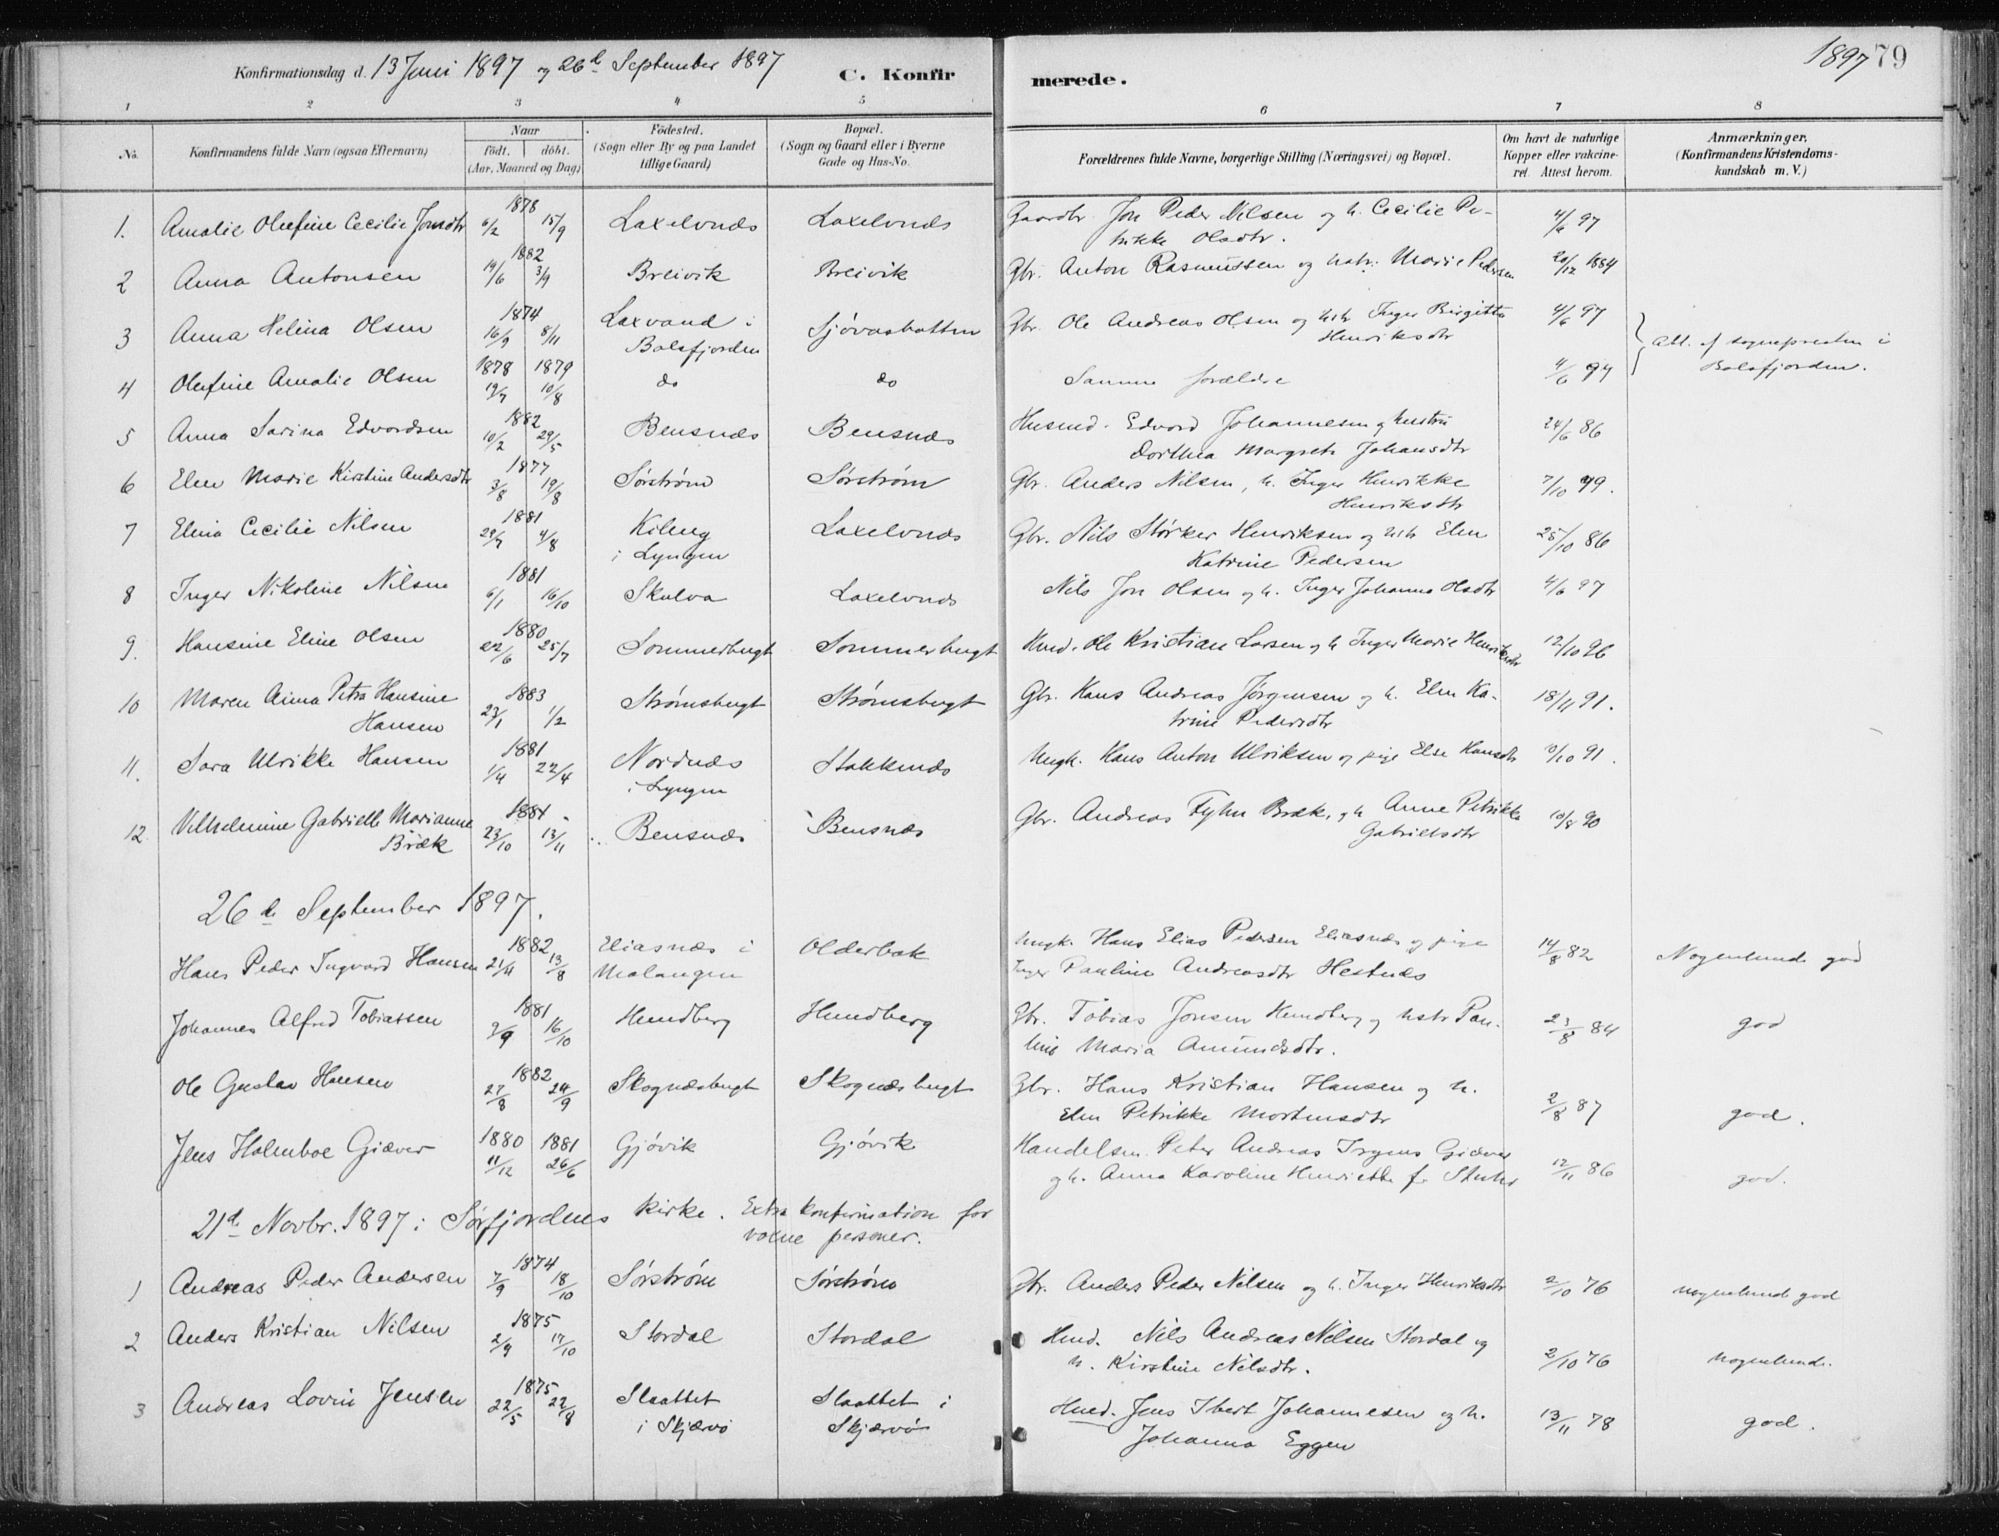 Konfirmationsdag d. 13 Juni 1897 og 26d September 1897 C. Konfirmerede. 1897 79
1 2 3 4 5 6 7 8
No. Konfirmandens fulde Navn (ogsaa Efternavn) Naar födt. döbt. (Aar, Maaned og Dag) Födested. (Sogn eller By og paa Landet tillige Gaard) Bopæl. (Sogn og Gaard eller i Byerne Gade og Hus-No. Forældrenes fulde Navne, borgerlige Stilling (Næringsvei) og Bopæl. Om havt de naturlige Kopper eller vakcineret. Attest herom. Anmærkninger. (Konfirmandens Kristendomskundskab m. V.)
1. Amalie Olufine Cecilie Jonsdtr 1878 6/2 15/9 Laxelvnds Laxelvnds Gaardbr. Jon Peder Nilsen og h. Cecilie Petrikke Olsdtr. 4/6 97
2 Anna Antonsen 1882 19/6 3/9 Breivik Breivik Gbr. Anton Rasmussen og hstr: Marie Pedersen 20/12 1884
3 Anna Helina Olsen 1874 16/9 8/11 Laxvand i Balsfjorden Sjøvasbotten Gbr. Ole Andreas Olsen og hth Inger Birgitta Henriksdtr 4/6 97
Att. af sognepresten i Balsfjorden.
4 Olufine Amalie Olsen 1878 1879 19/7 10/8 do do Samme forældre 4/6 97
5 Anna Sarina Edvardsen 1882 10/2 29/5 Bensnæs Bensnæs Husmd. Edvard Johannesen og hustru Dorthea Margrete Johansdtr 24/6 86
6 Elen Marie Kirstine Andersdtr 1877 3/8 19/8 Sørstrøm Sørstrøm Gbr. Anders Nilsen, h. Inger Henrikke Henriksdtr 7/10 79.
7 Elina Cecilie Nilsen 1881 29/7 4/8 Kileng i Lyngen Laxelvnds Gbr. Nils Størker Henriksen og hth Elen Katrine Pedersen 25/10 86
8 Inger Nikoline Nilsen 1881 6/1 16/10 Skulva Laxelvnds Nils Jon Olsen og h. Inger Johanna Olsdtr 4/6 97
9. Hansine Eline Olsen 1880 22/6 25/7 Sommerbugt Sommerbugt Hmd. Ole Kristian Larsen og h Inger Marie Henriksdtr 12/10 96
10 Maren Anna Petra Hansine Hansen 1883 23/1 1/2 Strømsbugt Strømsbugt Gbr. Hans Andreas Jørgensen og h. Elen Katrine Pedersdtr 18/11 91.
11. Sara Ulrikke Hansen 1881 1/4 22/4 Nordnæs i Lyngen Stakkenæs Ungk. Hans Anton Ulriksen og pige Else Hansdtr 10/10 91.
12. Vilhelmine Gabrielle Marianne Bræk 1881 23/10 13/11 Bensnæs Bensnæs Gbr. Andreas Fyhn Bræk, og h Anne Petrikke Gabrielsdtr 10/8 90
26de September 1897.
Hans Peder Ingvard Hansen 1882 21/4 13/8 Eliasnæs i Malangen Olderbak Ungk. Hans Elias Pedersen Eliasnæs og pige Inger Pauline Andreasdtr Hestnæs 14/8 82 Nogenlunde god
Johannes Alfred Tobiassen 1881 2/9 16/10 Hundberg Hundberg Gbr. Tobias Jonsen Hundberg og hstr Pauline Maria Amundsdtr. 23/8 84 god
Ole Gustav Hansen 1882 27/8 24/9 Skognæsbugt Skognæsbugt Gbr. Hans Kristian Hansen og h. Elen Petrikke Mortensdtr 2/8 87 god.
Jens Holmboe Giæver 1880 1881 11/12 26/6 Gjøvik Gjøvik Handelsm. Peter Andreas Irgens Giæver og h. Anna Karoline Henriette f. 12/11 86 god.
21d Novbr. 1897 i Sørfjordens kirke. Extra konfirmation for voxne personer.
1 Andreas Peder Andersen 1874 7/9 18/10 Sørstrøm Sørstrøm Gbr. Anders Peder Nilsen og h. Inger Henriksdtr 2/10 76 nogenlunde god
2 Anders Kristian Nilsen 1875 2/9 17/10 Stordal Stordal Hmd. Nils Andreas Nilsen Stordal og h. Kirstine Nilsdtr. 2/10 76 nogenlunde.
3 Andreas Lovin Jensen 1875 22/5 22/8 Slaattet i Skjærvø Slaattet i Skjærvø Hmd. Jens Ibert Johannesen og h. Johanna Eggen 13/11 78 god.